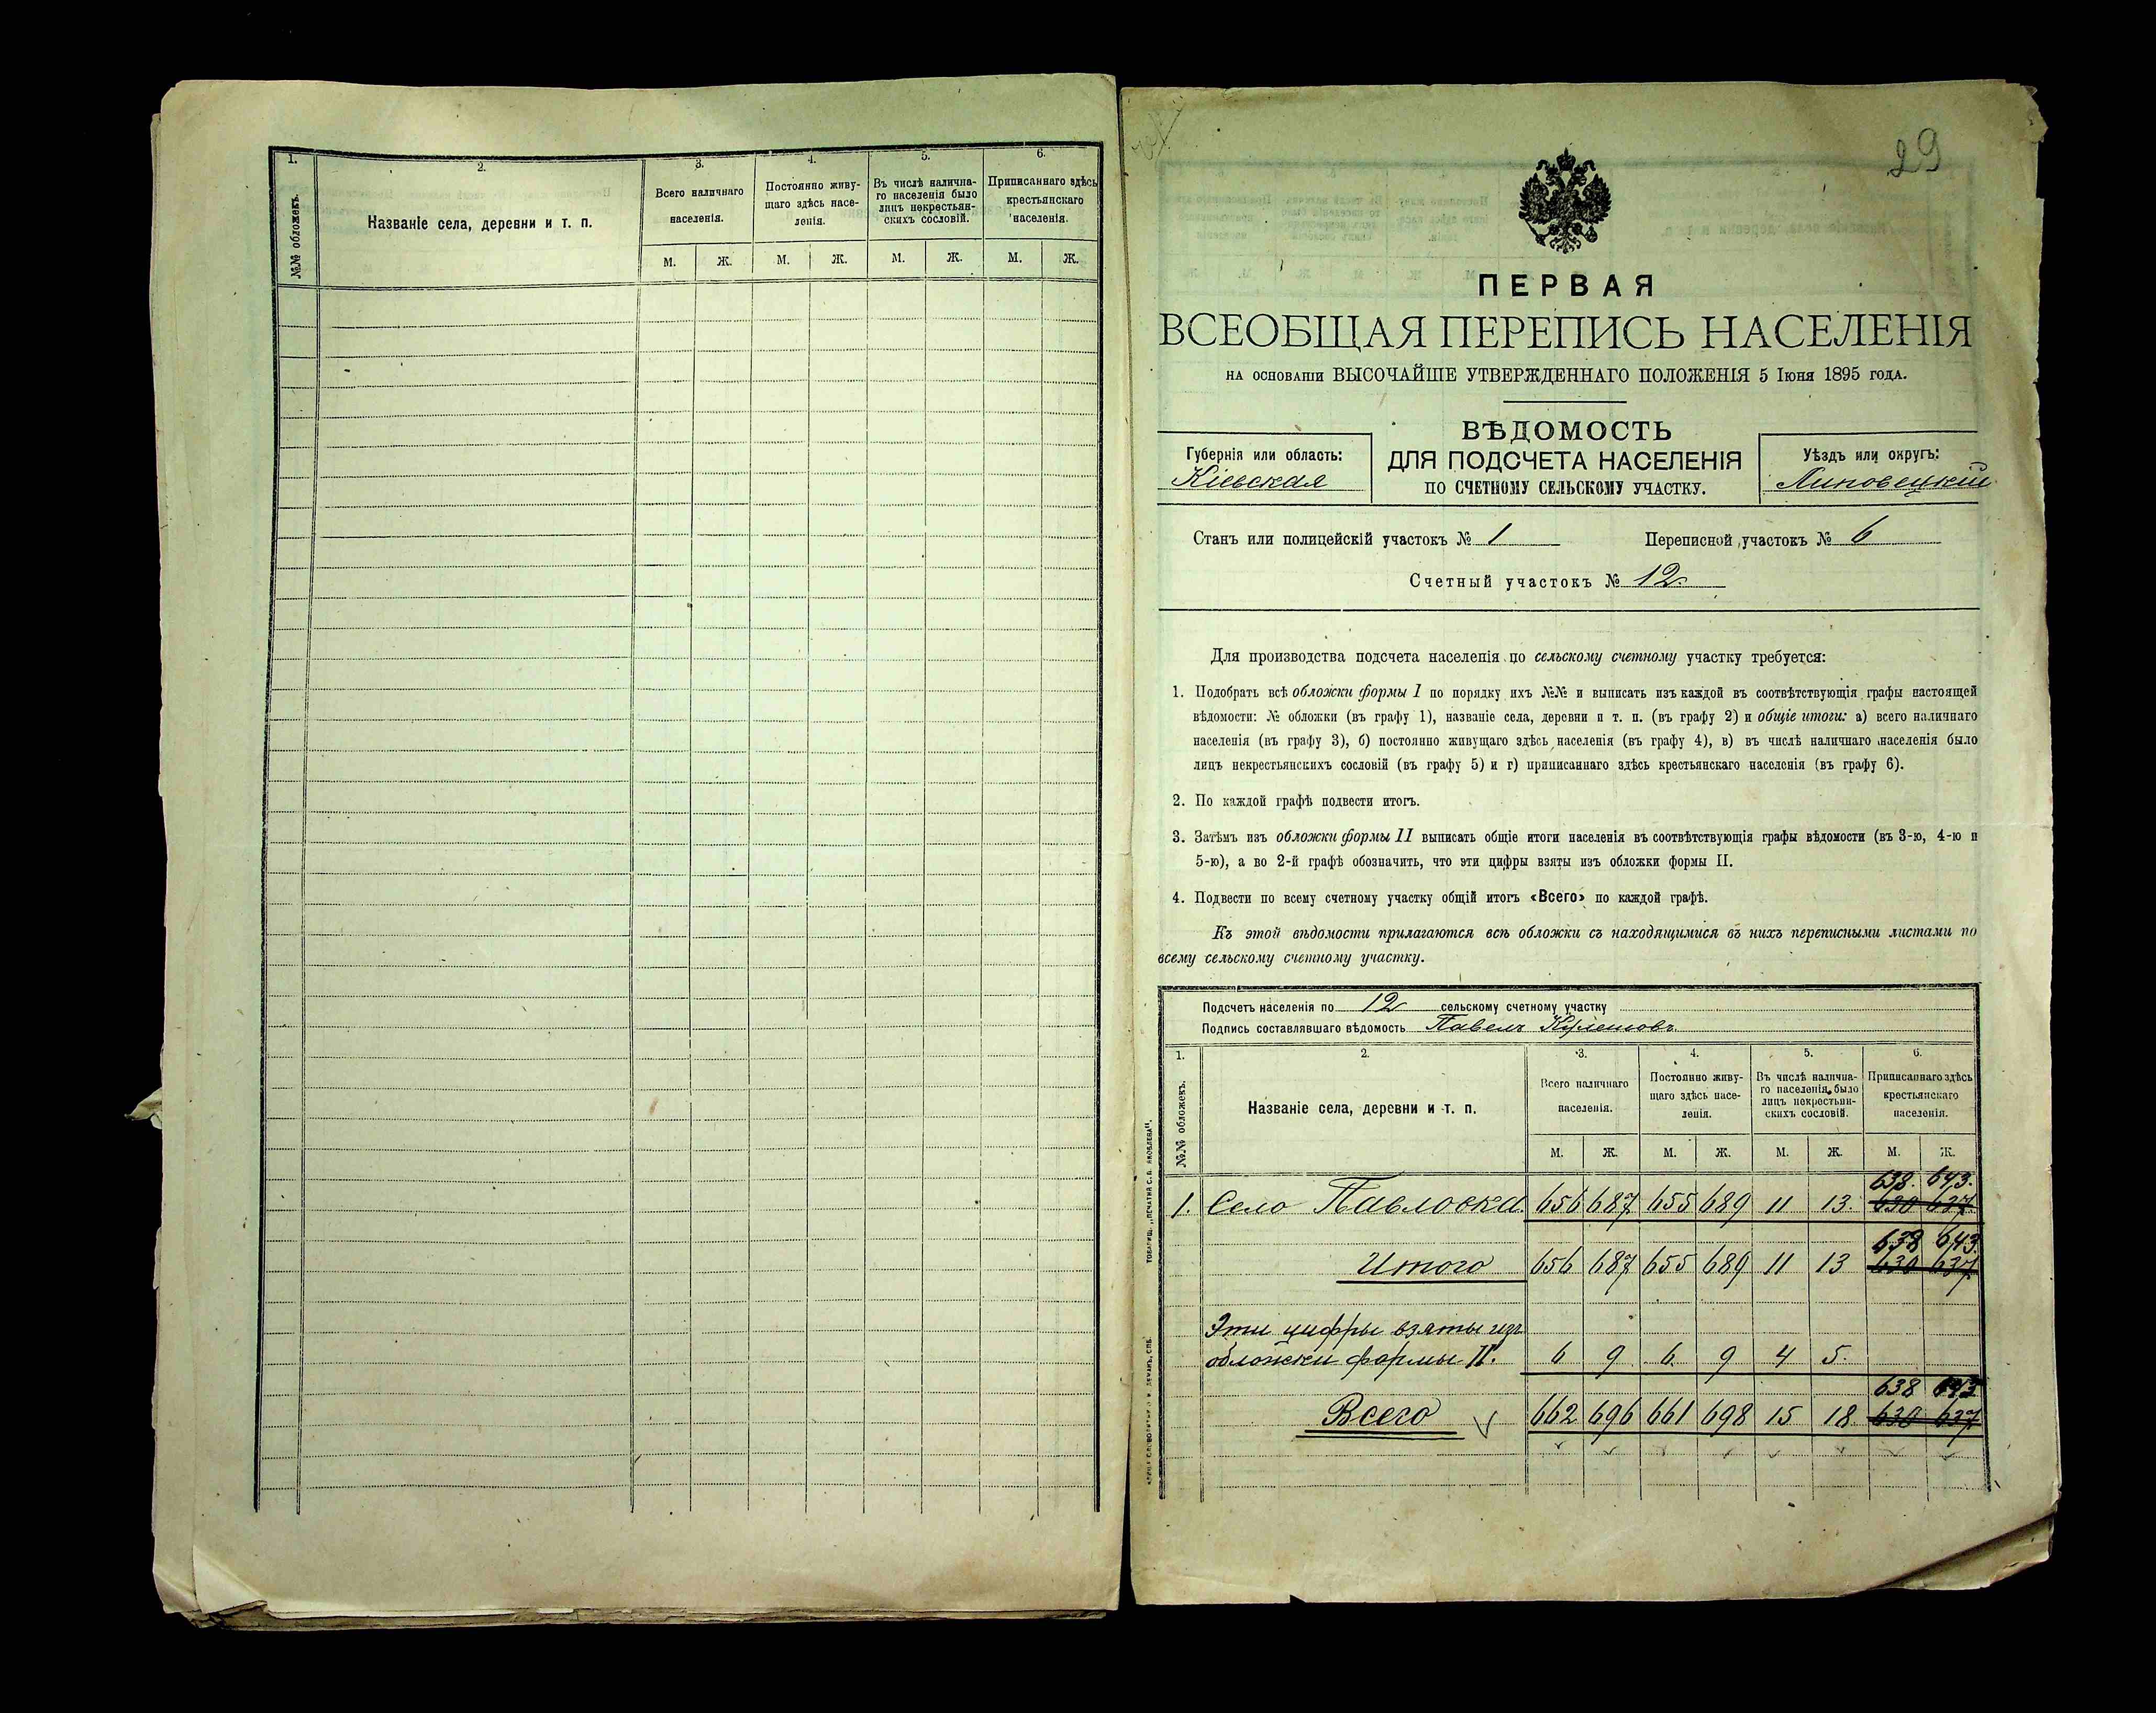 1.
2.
3.
4.
5.
6.
№№ обложекъ.
Названіе села, деревни и т. п.
Всего наличнаго
населенія.
Постоянно живу-
щаго здѣсь насе-
ленія.
Въ числѣ налична-
го населенія было
лицъ некрестьян-
скихъ сословій.
Приписаннаго здѣсь
крестьянскаго
населенія.
М. Ж. М. Ж. М. Ж. М. Ж.
29
ПЕРВАЯ
ВСЕОБЩАЯ ПЕРЕПИСЬ НАСЕЛЕНІЯ
НА ОСНОВАНІИ ВЫСОЧАЙШЕ УТВЕРЖДЕННАГО ПОЛОЖЕНІЯ 5 Іюня 1895 ГОДА.
Губернія или область:
Кіевская
ВѢДОМОСТЬ
ДЛЯ ПОДСЧЕТА НАСЕЛЕНІЯ
ПО СЧЕТНОМУ СЕЛЬСКОМУ УЧАСТКУ.
Уѣздъ или округъ:
Липовецкій
Станъ или полицейскій участокъ № 1 Переписной участокъ № 6
Счетный участокъ № 12.
Для производства подсчета населенія по сельскому счетному участку требуется:
1. Подобрать всѣ обложки формы I по порядку ихъ №№ и выписать изъ каждой въ соотвѣтствующія графы настоящей
вѣдомости: № обложки (въ графу 1), названіе села, деревни и т. п. (въ графу 2) и общіе итоги: а) всего наличнаго
населенія (въ графу 3), б) постоянно живущаго здѣсь населенія (въ графу 4), в) въ числѣ наличнаго населенія было
лицъ некрестьянскихъ сословій (въ графу 5) и г) приписаннаго здѣсь крестьянскаго населенія (въ графу 6).
2. По каждой графѣ подвести итогъ.
3. Затѣмъ изъ обложки формы II выписать общіе итоги населенія въ соотвѣтствующія графы вѣдомости (въ 3-ю, 4-ю и
5-ю), а во 2-й графѣ обозначить, что эти цифры взяты изъ обложки формы II.
4. Подвести по всему счетному участку общій итогъ «Всего» по каждой графѣ.
Къ этой вѣдомости прилагаются всѣ обложки съ находящимися въ нихъ переписными листами по
всему сельскому счетному участку.
Подсчетъ населенія по 12 сельскому счетному участку
Подпись составлявшаго вѣдомость Павелъ Кулешовъ
1.
2.
3.
4.
5.
6.
№№ обложекъ.
Названіе села, деревни и т. п.
Всего наличнаго
населенія.
Постоянно живу-
щаго здѣсь насе-
ленія.
Въ числѣ налична-
го населенія было
лицъ некрестьян-
скихъ сословій.
Приписаннаго здѣсь
крестьянскаго
населенія.
М. Ж. М. Ж. М. Ж. М. Ж.
638. 643.
1. Село Павловка. 656 687 655 689 11 13. 630 637.
638 643.
Итого 656 687 655 689 11 13 630 637.
Эти цифры взяты изъ
обложки формы II. 6 9 6 9 4 5.
638 643
Всего 662 696 661 698 15 18 630 637